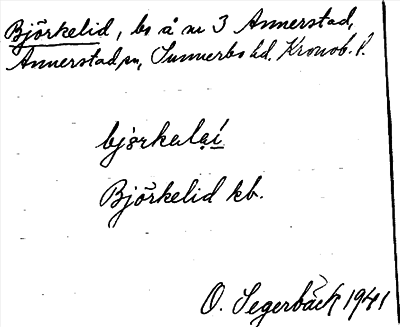 Björkelid, bs å nr 3 Annerstad,
Annerstad sn, Sunnerbo hd. Kronob. l.
Björkelid kb.
O. Segerbäck 1941